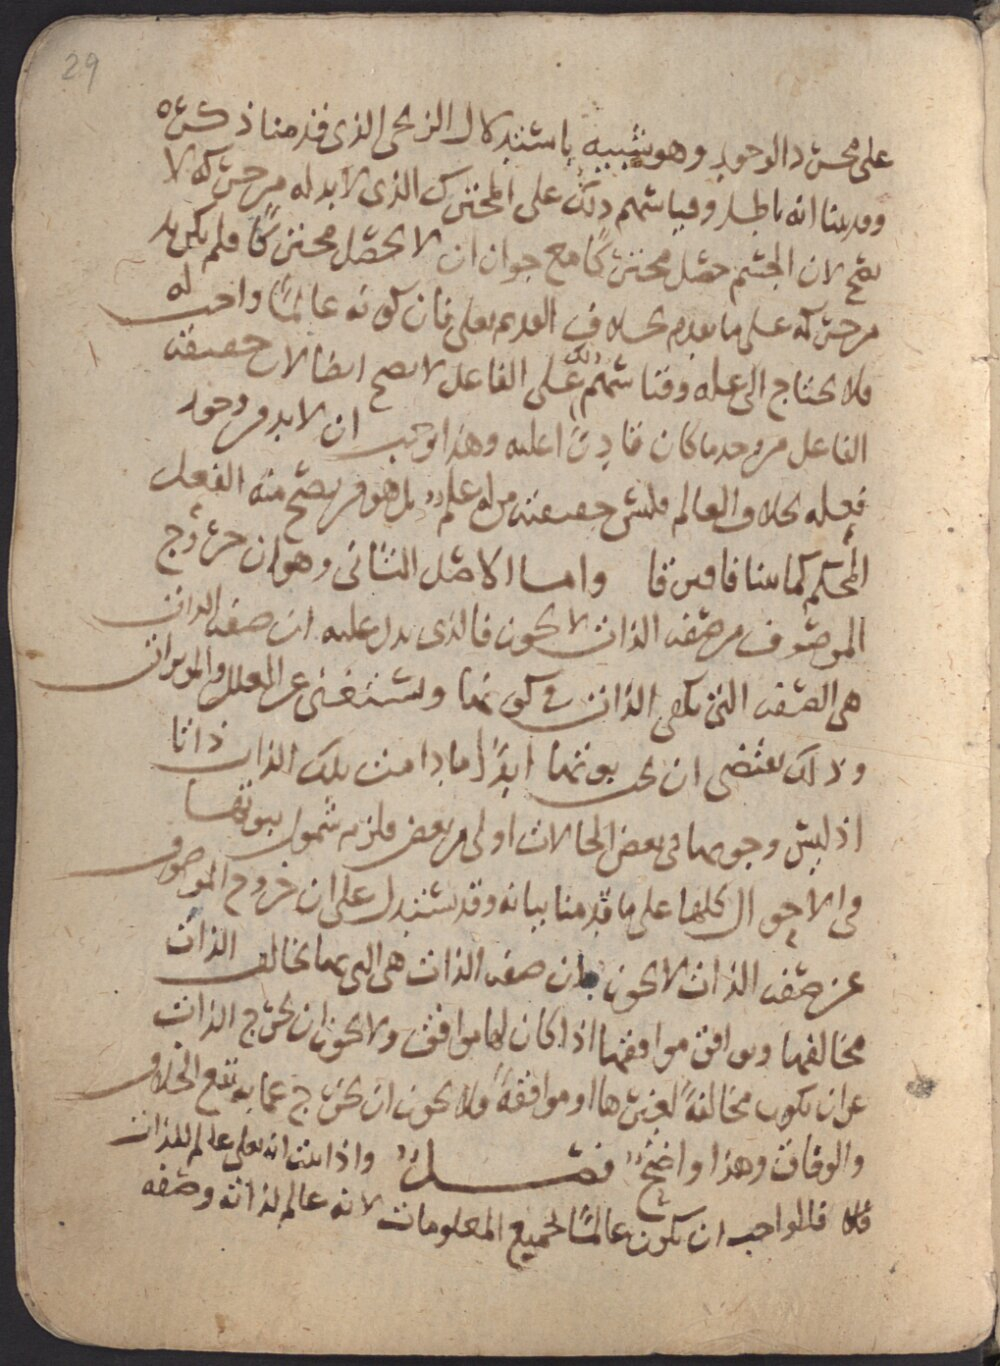 29
على مجرد الوجود وهو شبيه باستدلال الزنجي الذي قدمنا ذكره
وقد بينا انه باطل وقياسهم ذلك على المتحرك الذي لا بد له من حركه لا
يصح لان الجسم حصل متحركًا مع جواز ان لا يحصل متحركًا فلم يكن بد
من حركه على ما تقدم بخلاف القديم تعلى فان كونه عالمًا واجب له
فلا يحتاج الى عله وقياسهم ذلك على الفاعل لا يصح ايضا لان حقيقه
الفاعل من وجد ما كان قادرًا عليه وهذا يوجب ان لا بد من وجود
فعله بخلاف العالم فليس حقيقته من له علم بل هو من يصح منه الفعل
المحكم كما بينا فافترقا واما الاصل الثاني وهو ان خروج
الموصوف من صفه الذات لا يجوز فالذي يدل عليه ان صفه الذات
هي الصفه التي تكفي الذات في كونها وتستغني عن العلل والموثرات
وذلك يقتضي ان يجب ثبوتها ابدًا ما دامت تلك الذات ذاتا
اذ ليس وجوبها في بعض الحالات اولى من بعض فلزم شمول ثبوتها
في الاحوال كلها على ما قدمنا بيانه وقد يستدل على ان خروج الموصوف
عن صفه الذات لا يجوز بان صفه الذات هي التي بها تخالف الذات
مخالفها وتوافق موافقها اذا كان لها موافق ولا يجوز ان تخرج الذات
عن ان تكون مخالفةً لغيرها او موافقةً فلا يجوز ان تخرج عما به يقع الخلاف
والوفاق وهذا واضح فصل واذا ثبت انه تعلى عالم للذات
فلا فالواجب ان يكون عالمًا لجميع المعلومات لانه عالم لذاته وصفه